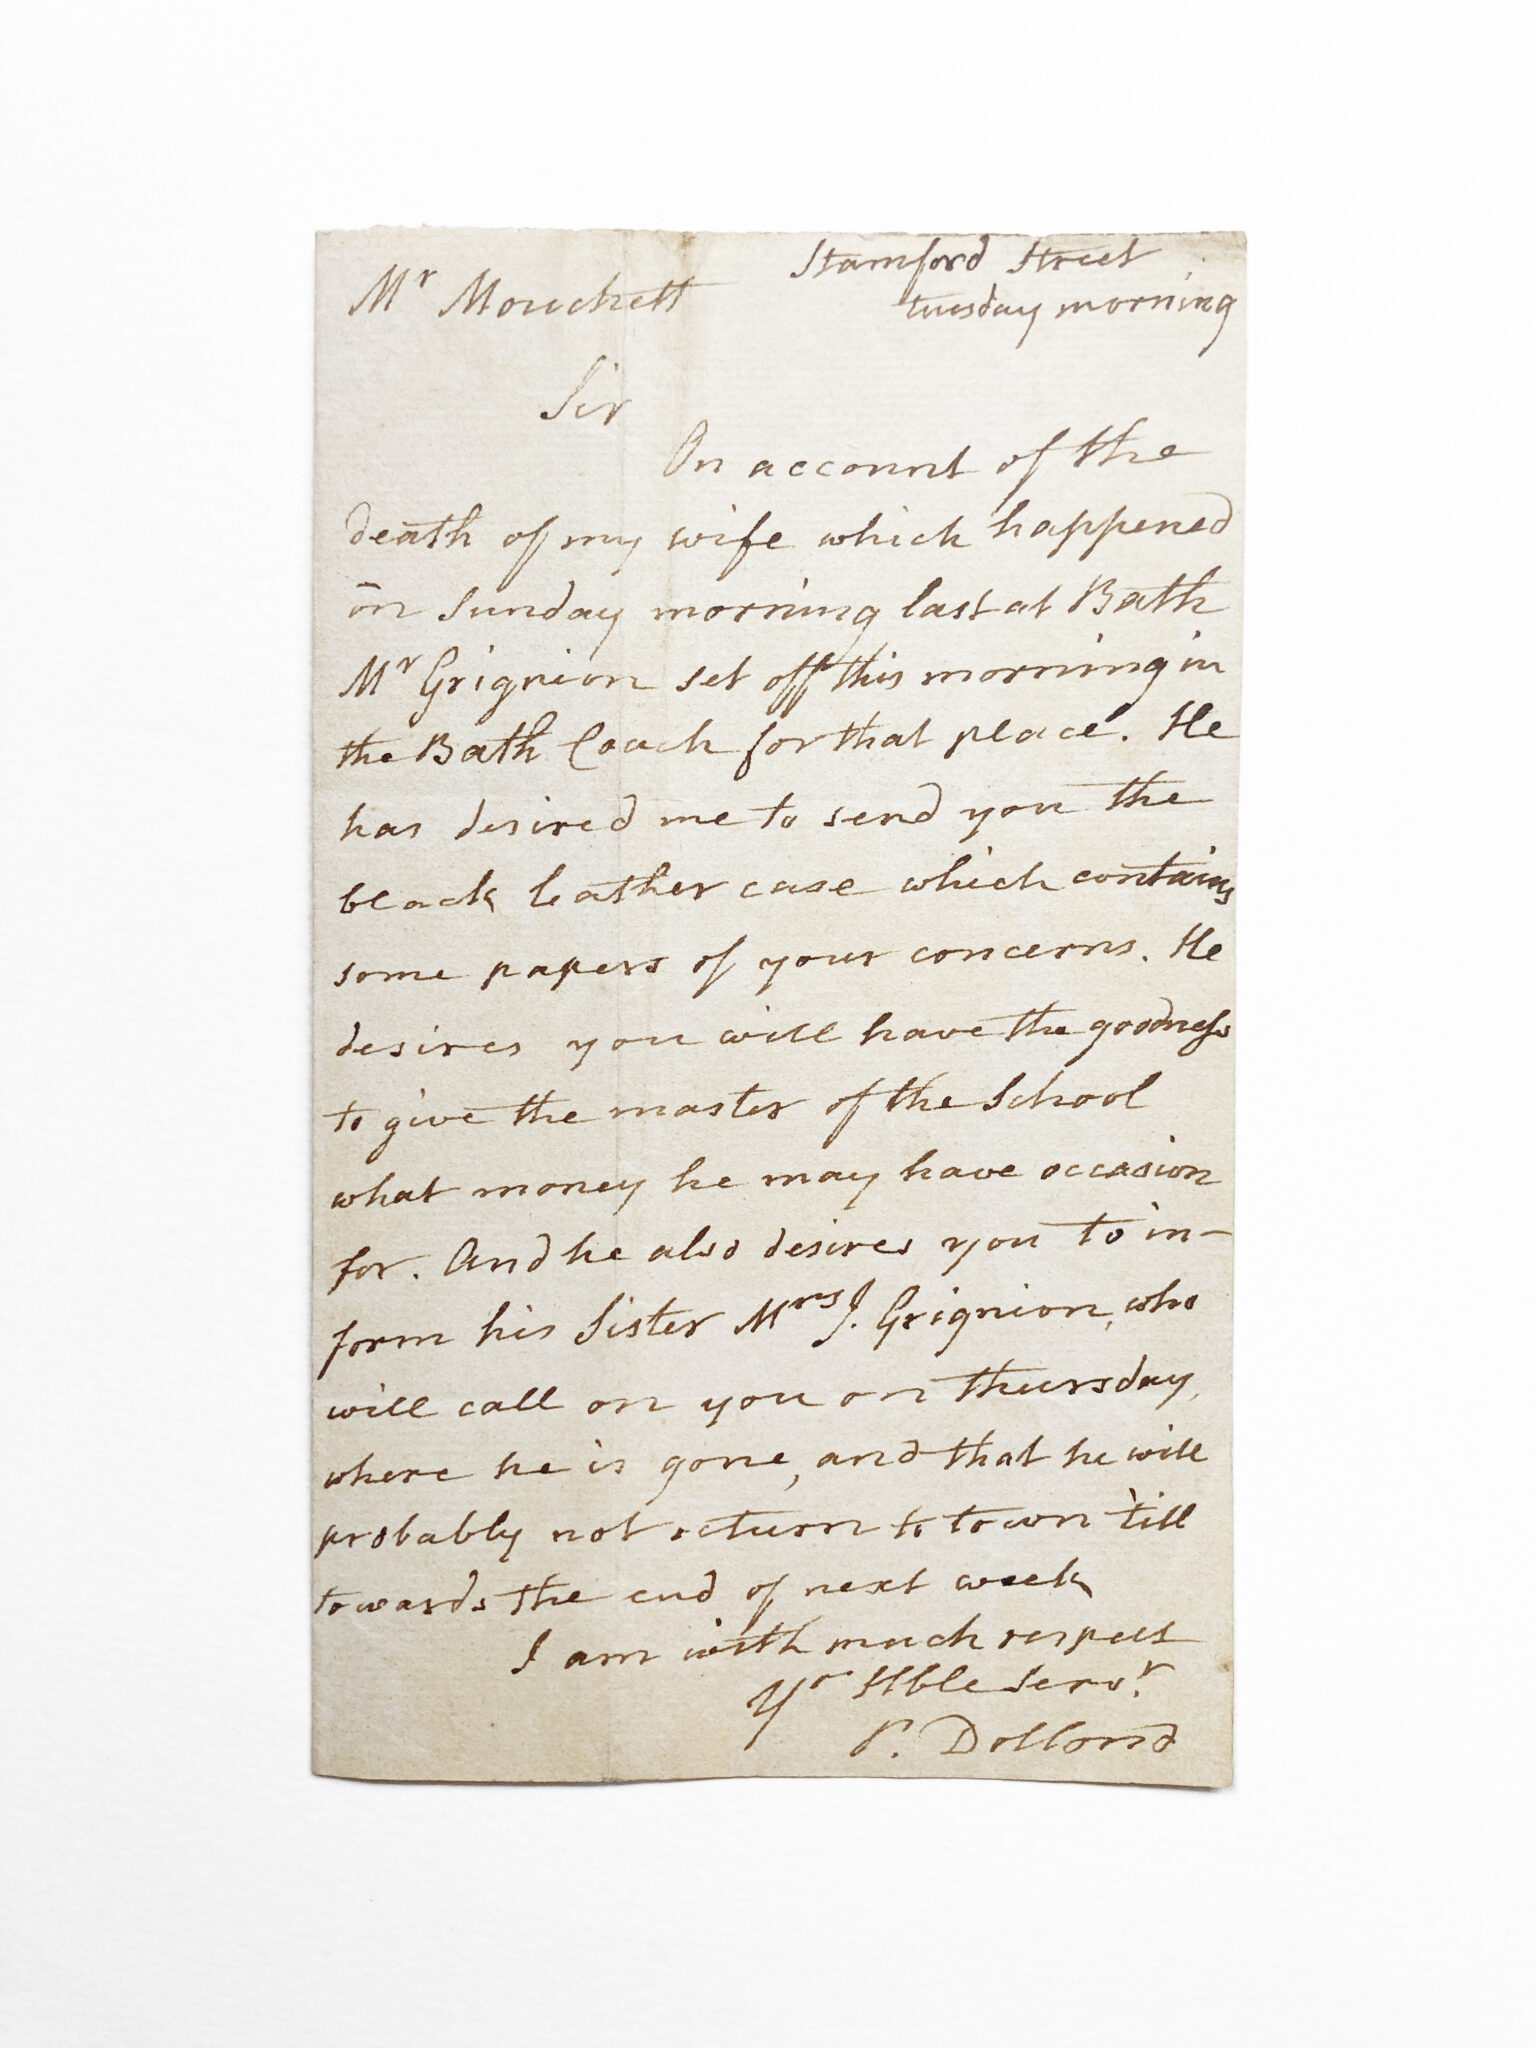 Stamford Street
tuesday morning
Mr Mouchett
Sir
On account of the
death of my wife which happened
on Sunday morning last at Bath
Mr Grignion set off this morning in
the Bath Coach for that place. He
has desired me to send you the
black leather case which contains
some papers of your concerns. He
desires you will have the goodness
to give the master of the School
what money he may have occasion
for. And he also desires you to in-
form his Sister Mrs J. Grignion, who
will call on you on thursday,
where he is gone, and that he will
probably not return to town 'till
towards the end of next week
I am with much respect
Yr Hble Servt
P. Dollond